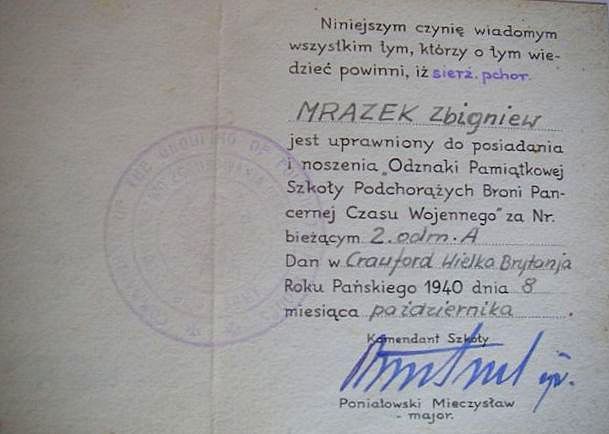 Niniejszym czynię wiadomym
wszystkim tym, którzy o tym wie-
dzieć powinni, iż sierż. pchor.
MRAZEK Zbigniew
jest uprawniony do posiadania
i noszenia „Odznaki Pamiątkowej
Szkoły Podchorążych Broni Pan-
cernej Czasu Wojennego” za Nr.
bieżącym 2. odm. A
Dan w Crawford Wielka Brytanja
Roku Pańskiego 1940 dnia 8
miesiąca października.
Komendant Szkoły
Poniatowski Mieczysław
- major.
OF THE GROUPING OF